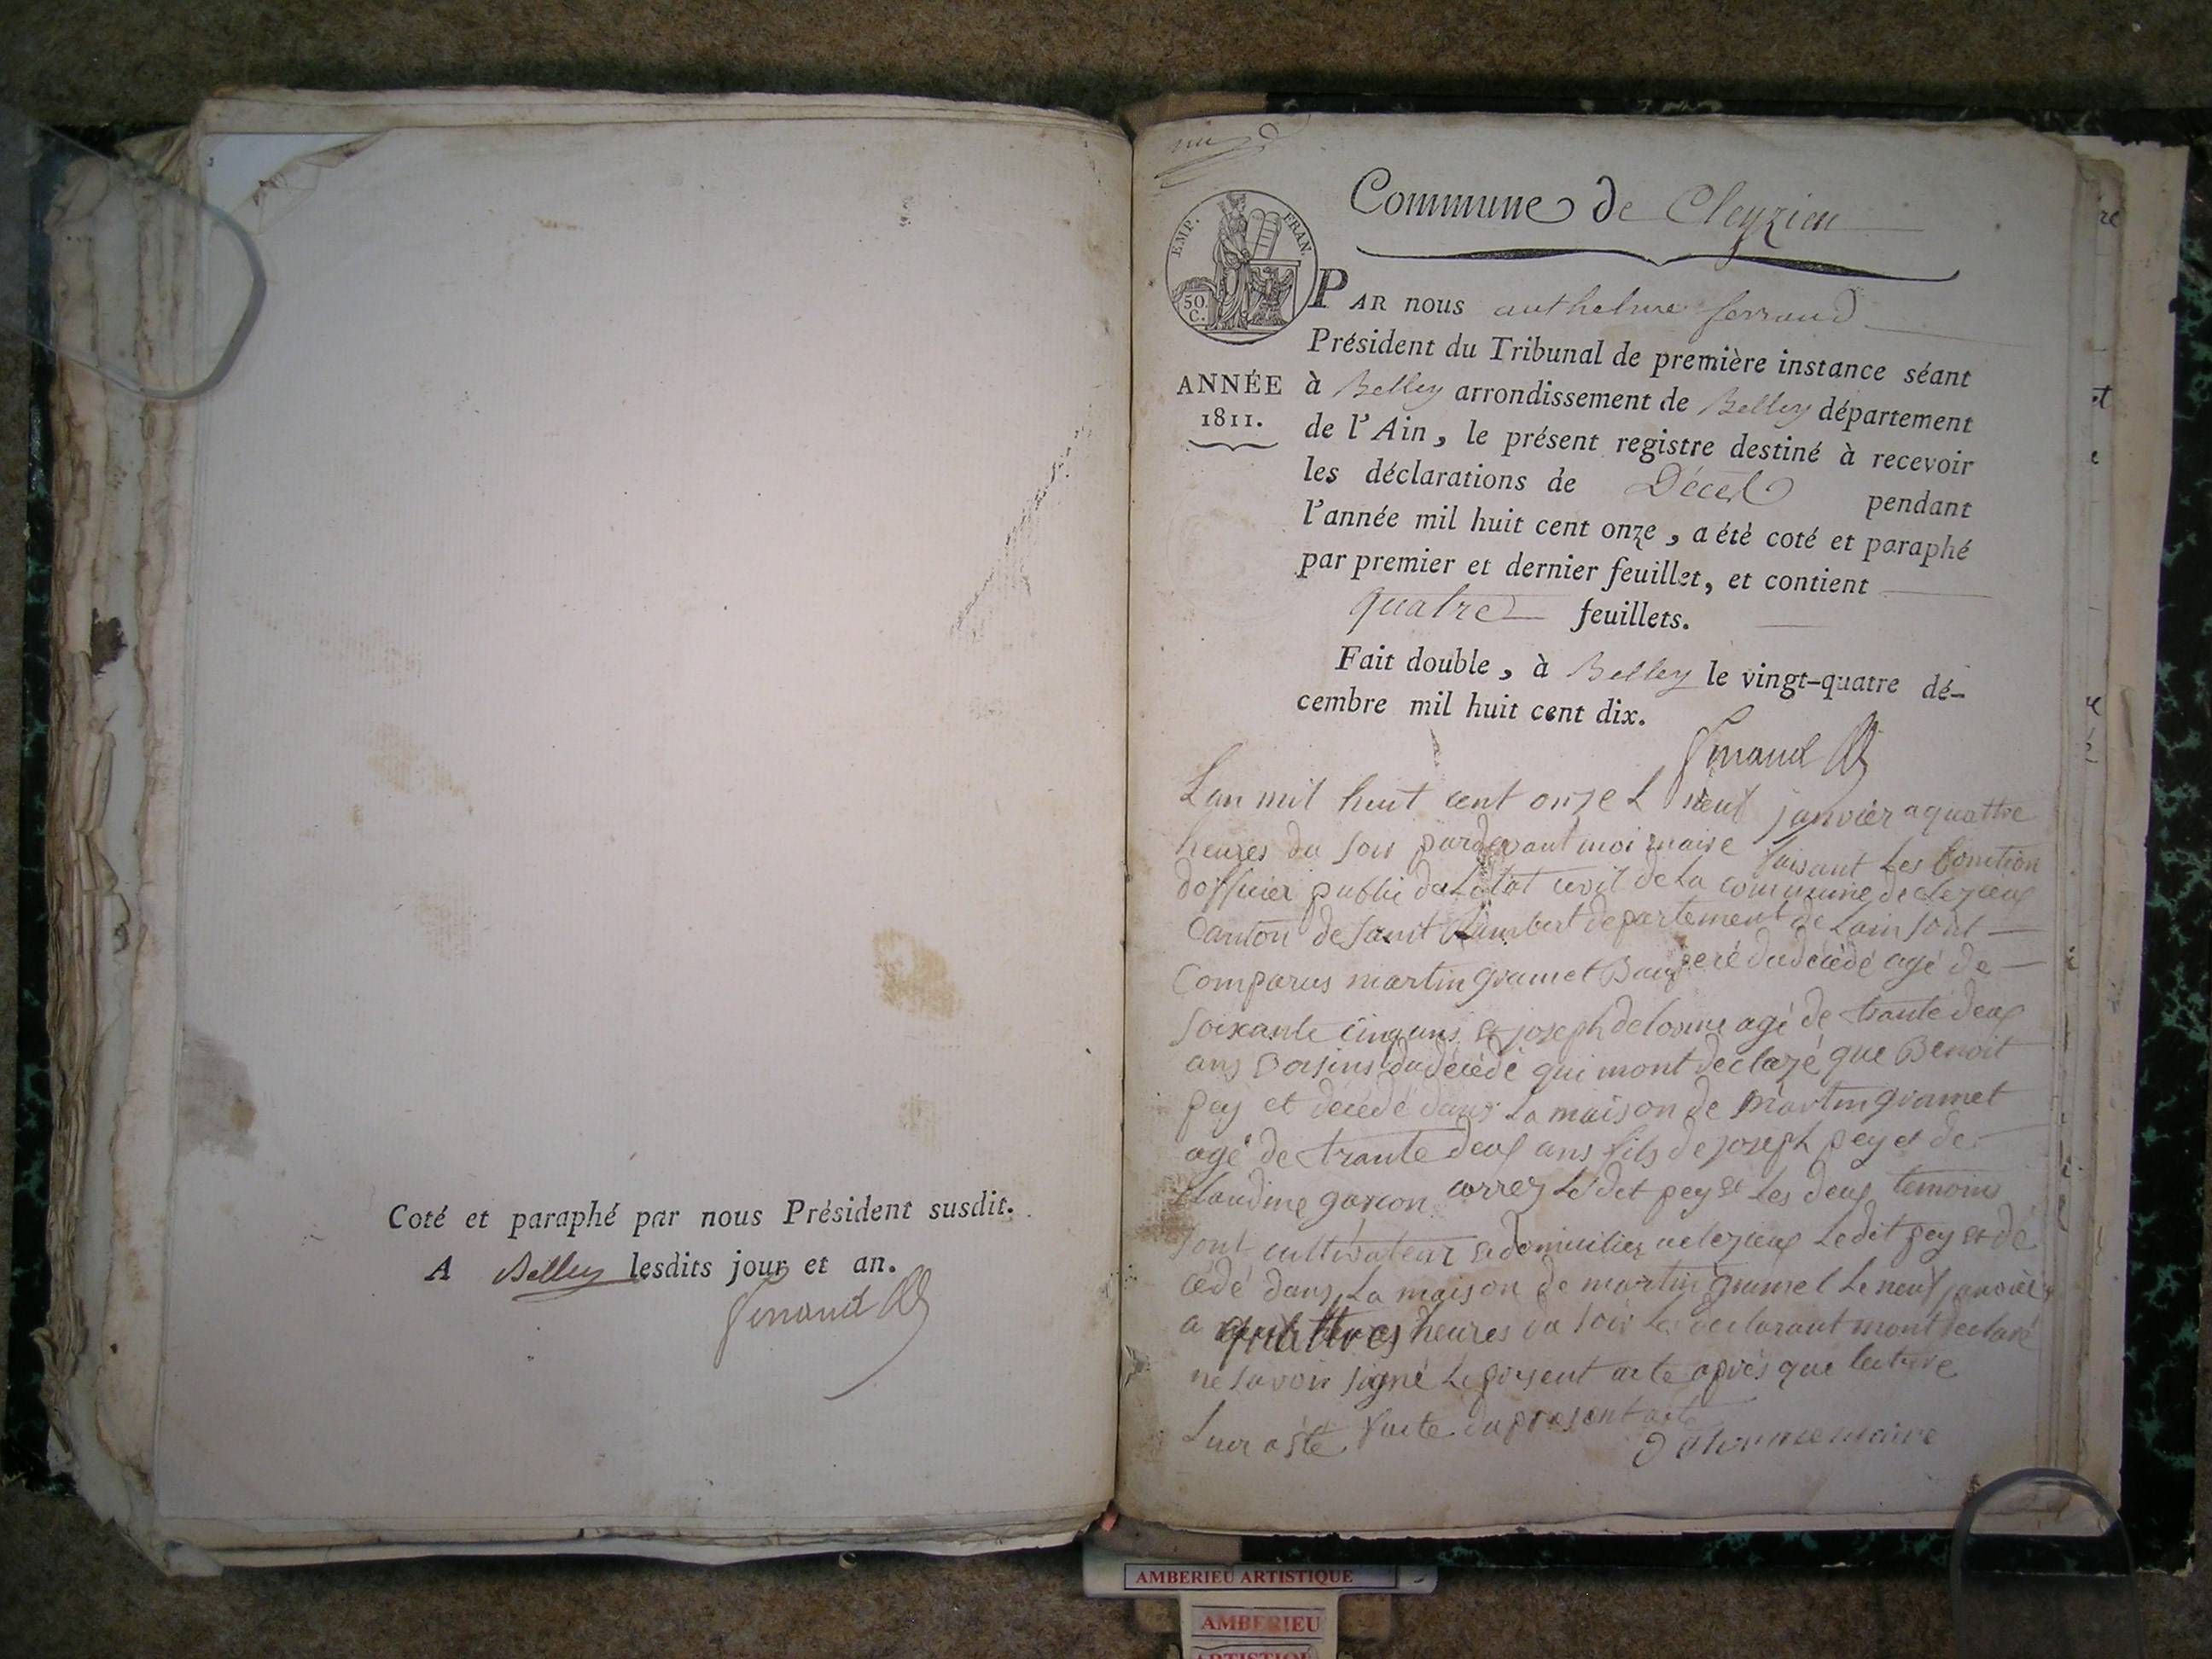 Coté et paraphé par nous Président susdit.
A Belley lesdits jour et an.
Ferrand
Commune de Cleyzieu
EMP. FRAN.
50.
C.
ANNÉE
1811.
PAR nous anthelme ferrand
Président du Tribunal de première instance séant
à Belley arrondissement de Belley département
de l'Ain, le présent registre destiné à recevoir
les déclarations de Décès pendant
l'année mil huit cent onze, a été coté et paraphé
par premier et dernier feuillet, et contient
quatre feuillets.
Fait double, à Belley le vingt-quatre dé-
cembre mil huit cent dix.
Ferrand
Lan mil huit cent onze L neuf janvier a quattre
heures du soir pardevant moi maire faisant les fonction
dofficier public de Letat civil de La commune de clezieux
Canton de saint Rambert departement de Lain sont
Comparus martin gramet Bau pere du décédé agé de
soixante cinq ans et joseph delorme agé de trante deux
ans voisins du décédé qui mont declaré que Benoit
pey et décédé dans La maison de martin gramet
agé de trante deux ans fils de joseph pey et de
Claudine garcon Le dit pey et Les deux temoins
sont cultivateur et domicilier a clezieux Le dit pey et dé
cédé dans La maison de martin gramet Le neuf janvier
a quattres heures du soir Le declarant mont declaré
ne savoir signé Le present acte aprés que lecture
Leur a été faite du present acte
Delorme maire
AMBERIEU ARTISTIQUE
AMBERIEU
ARTISTIQUE